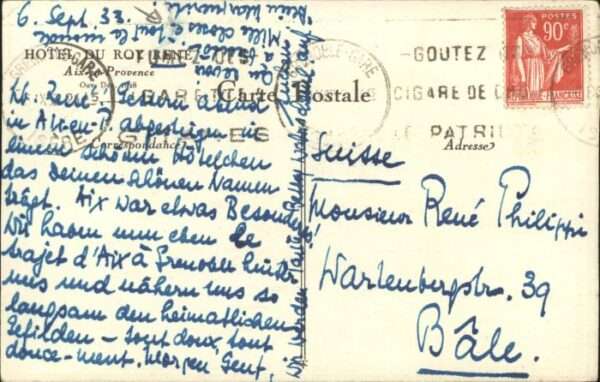 6. Sept. 33.
HÔTEL DU ROI RENÉ
Aix-en-Provence
Carte Postale
Correspondance
Adresse
POSTES
90c
GRENOBLE-GARE
GOUTEZ
CIGARE DE
PATRI
Lb. René! Gestern abend
in Aix-en-P. abgestiegen in
einem schönen Hôtelchen
das Deinen schönen Namen
trägt. Aix war etwas Besonderes!
Wir haben nun eben le
trajet d'Aix à Grenoble hinter
uns und nähern uns so
langsam den heimatlichen
Gefilden – tout doux, tout
douce-ment. Morgen Genf,
wir werden
Mille choses
à tout le monde
Suisse
Monsieur René Philippi
Wartenbergstr. 39
Bâle.